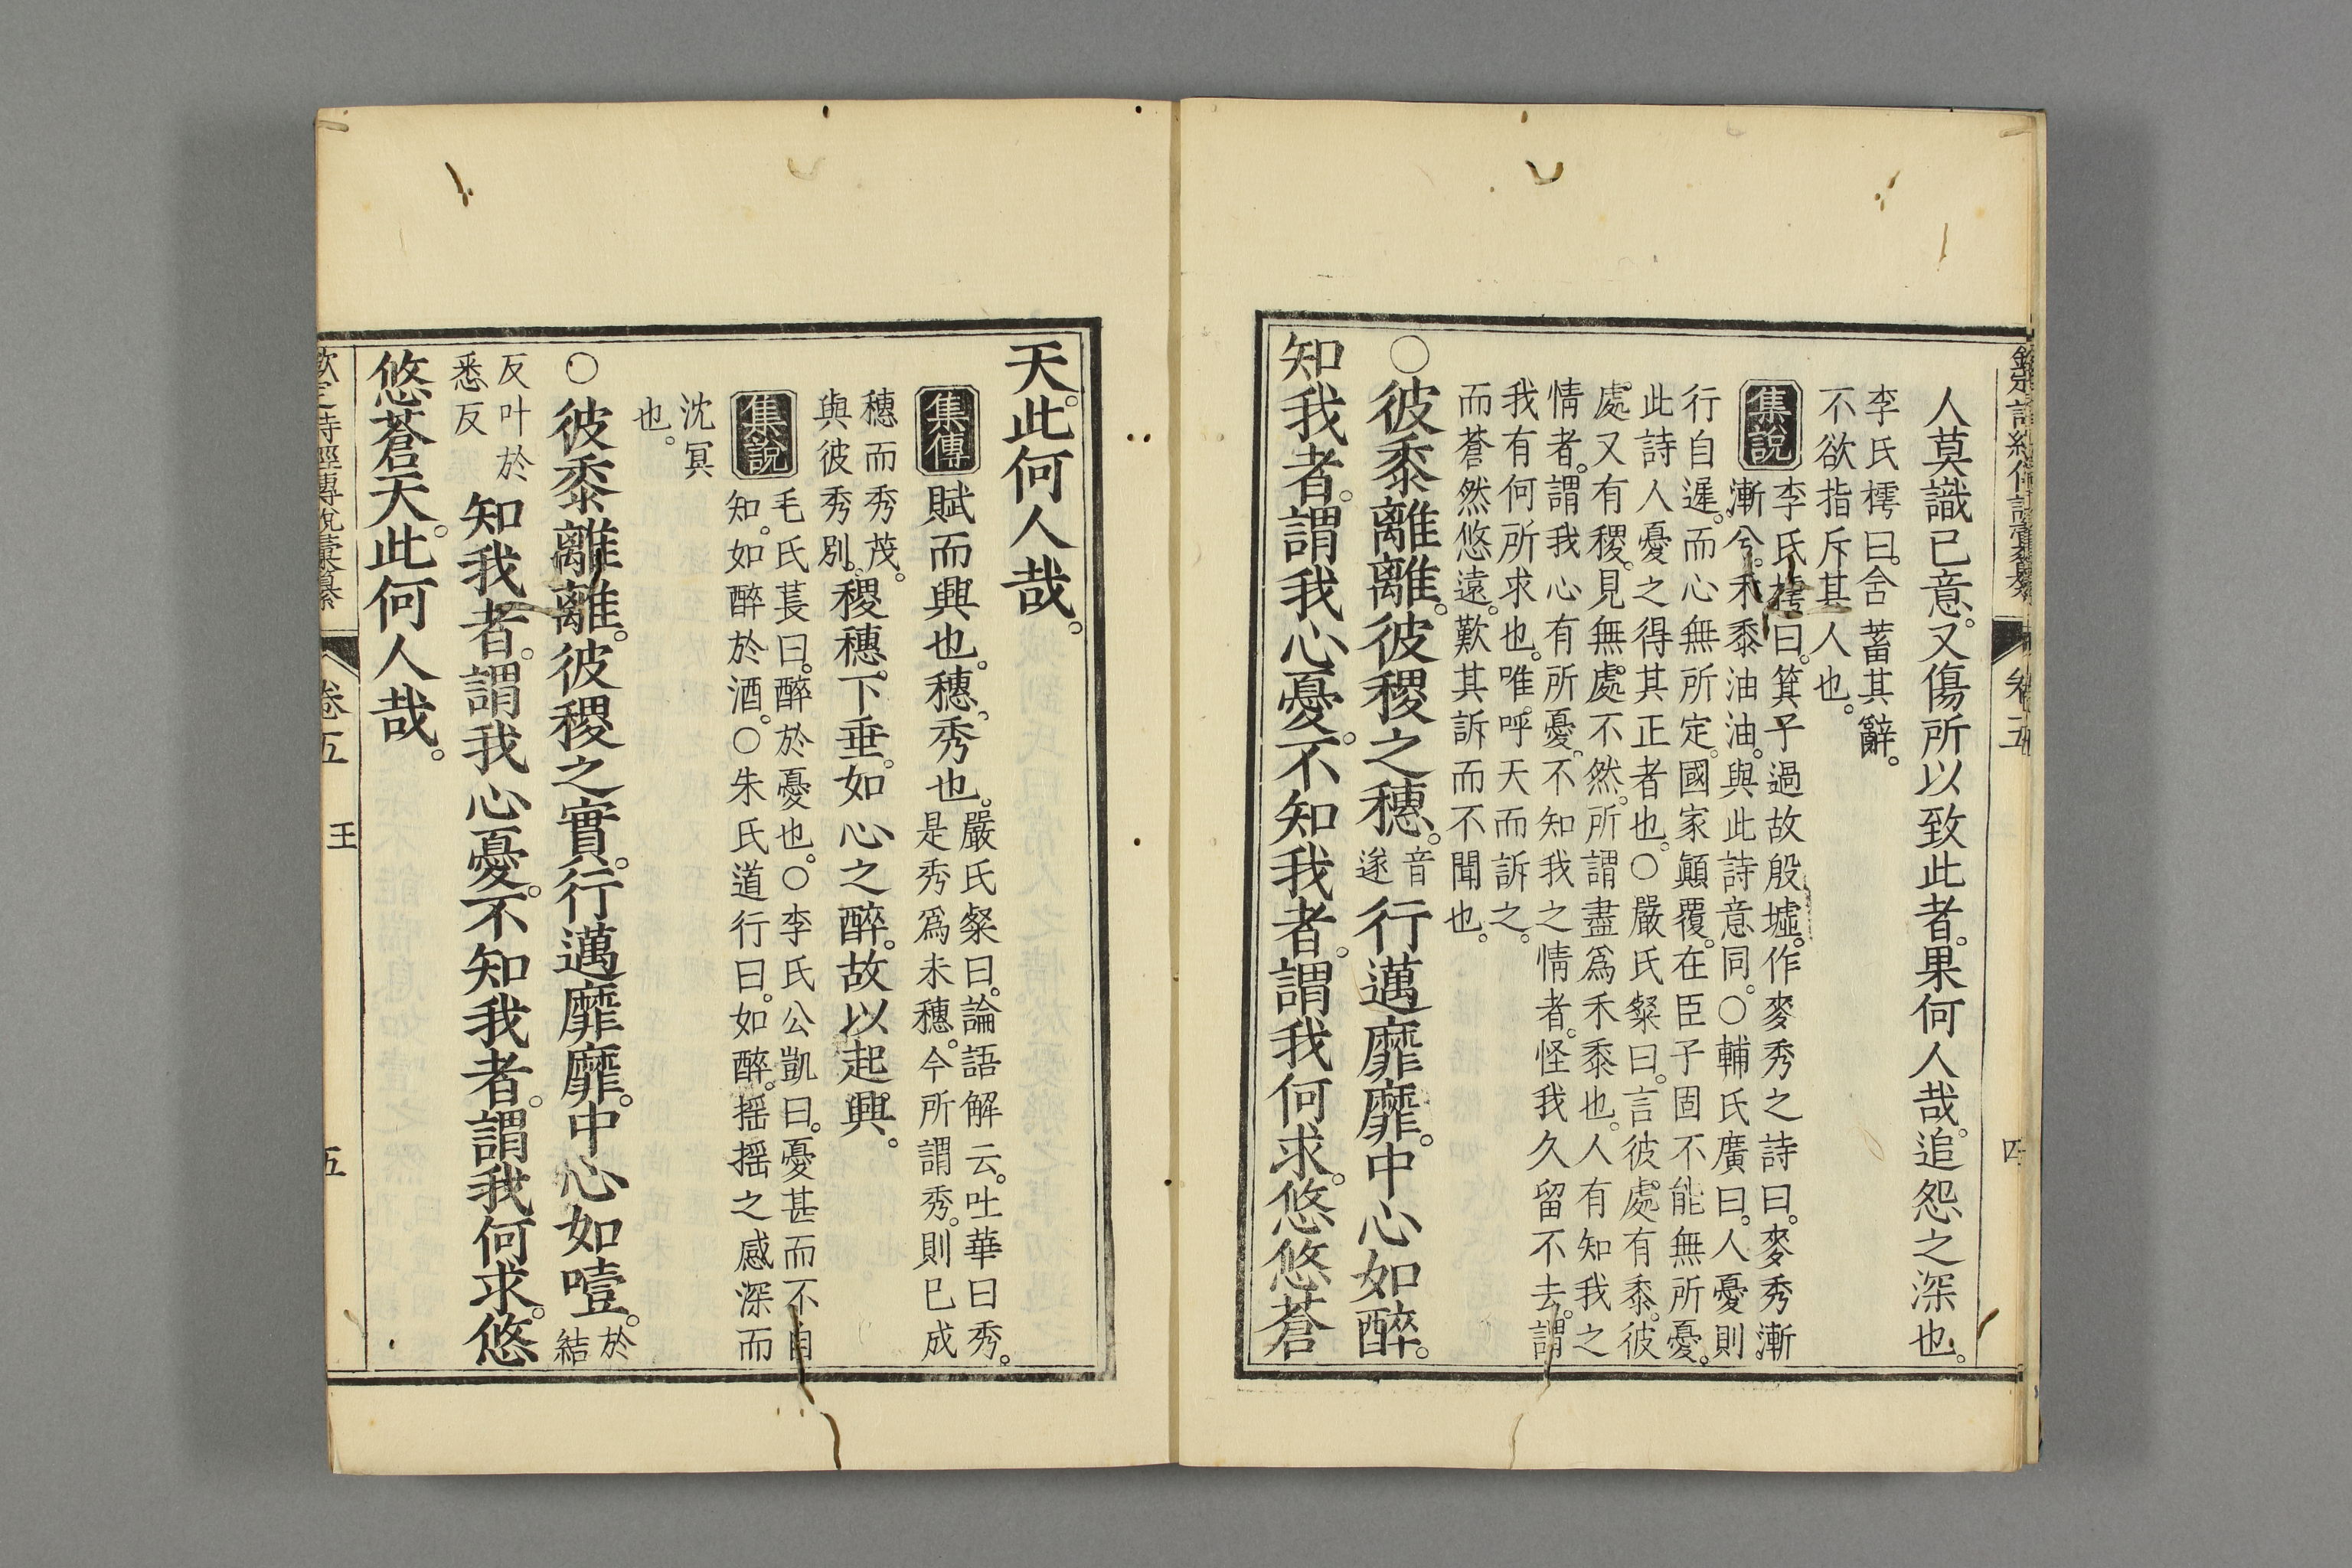 人莫識已意。又傷所以致此者。果何人哉。追怨之深也。
李氏樗曰。含蓄其辭。
不欲指斥其人也。
集說
李氏樗曰。箕子過故殷墟。作麥秀之詩曰。麥秀漸
漸兮。禾黍油油。與此詩意同。○輔氏廣曰。人憂則
行自遲。而心無所定。國家顚覆。在臣子固不能無所憂。
此詩人憂之得其正者也。○嚴氏粲曰。言彼處有黍。彼
處又有稷。見無處不然。所謂盡爲禾黍也。人有知我之
情者。謂我心有所憂。不知我之情者。怪我久留不去。謂
我有何所求也。唯呼天而訴之。
而蒼然悠遠。歎其訴而不聞也。
○彼黍離離。彼稷之穗。音
遂
行邁靡靡。中心如醉。
知我者。謂我心憂。不知我者。謂我何求。悠悠蒼
卷五
四
天。此何人哉。
集傳
賦而興也。穗。秀也。嚴氏粲曰。論語解云。吐華曰秀。
是秀爲未穗。今所謂秀。則已成
穗而秀茂。
與彼秀別。
稷穗下垂。如心之醉。故以起興。
集說
毛氏萇曰。醉於憂也。○李氏公凱曰。憂甚而不自
知。如醉於酒。○朱氏道行曰。如醉。搖搖之感深而
沈冥
也。
○彼黍離離。彼稷之實。行邁靡靡。中心如噎。於
結
反叶於
悉反
知我者。謂我心憂。不知我者。謂我何求。悠
悠蒼天。此何人哉。
欽定詩經傳說彙纂
卷五
王
五